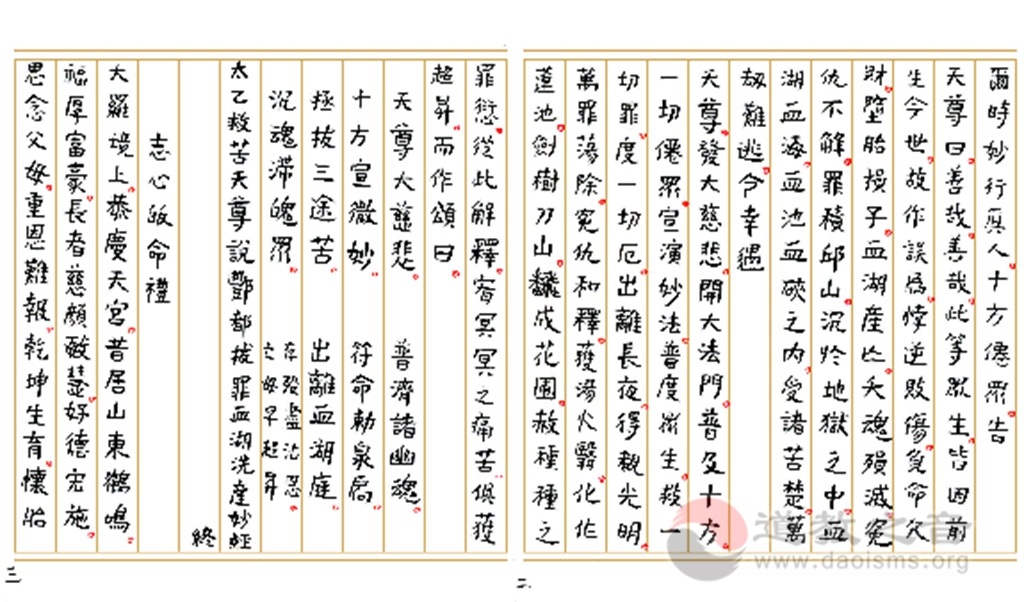 爾時妙行眞人十方僊眾告
天尊曰善哉善哉此等眾生皆因前
生今世故作誤爲悖逆敗傷負命欠
財墮胎損子血湖產亡夭魂殞滅冤
仇不解罪積邱山沉於地獄之中血
湖血海血池血硤之內受諸苦楚萬
刼難逃今幸遇
天尊發大慈悲開大法門普及十方
一切僊眾宣演妙法普度眾生救一
切罪度一切厄出離長夜得覩光明
萬罪蕩除冤仇和釋鑊湯火翳化作
蓮池劍樹刀山變成花圃赦種種之
罪愆從此解釋宥冥冥之痛苦俱獲
超昇而作頌曰
天尊大慈悲 普濟諸幽魂
十方宣微妙 符命勅泉扃
拯拔三途苦 出離血湖庭
沉魂滯魄眾 存歿盡沾恩 亡母早超昇
太乙救苦天尊說酆都拔罪血湖洗產妙經
終
志心皈命禮
大羅境上恭慶天宮昔居山東鶴鳴
福厚富豪長者慈顏 好德 施
思念父母重恩難報乾坤生育懷胎
二
三
道教之音
www.daoisms.org